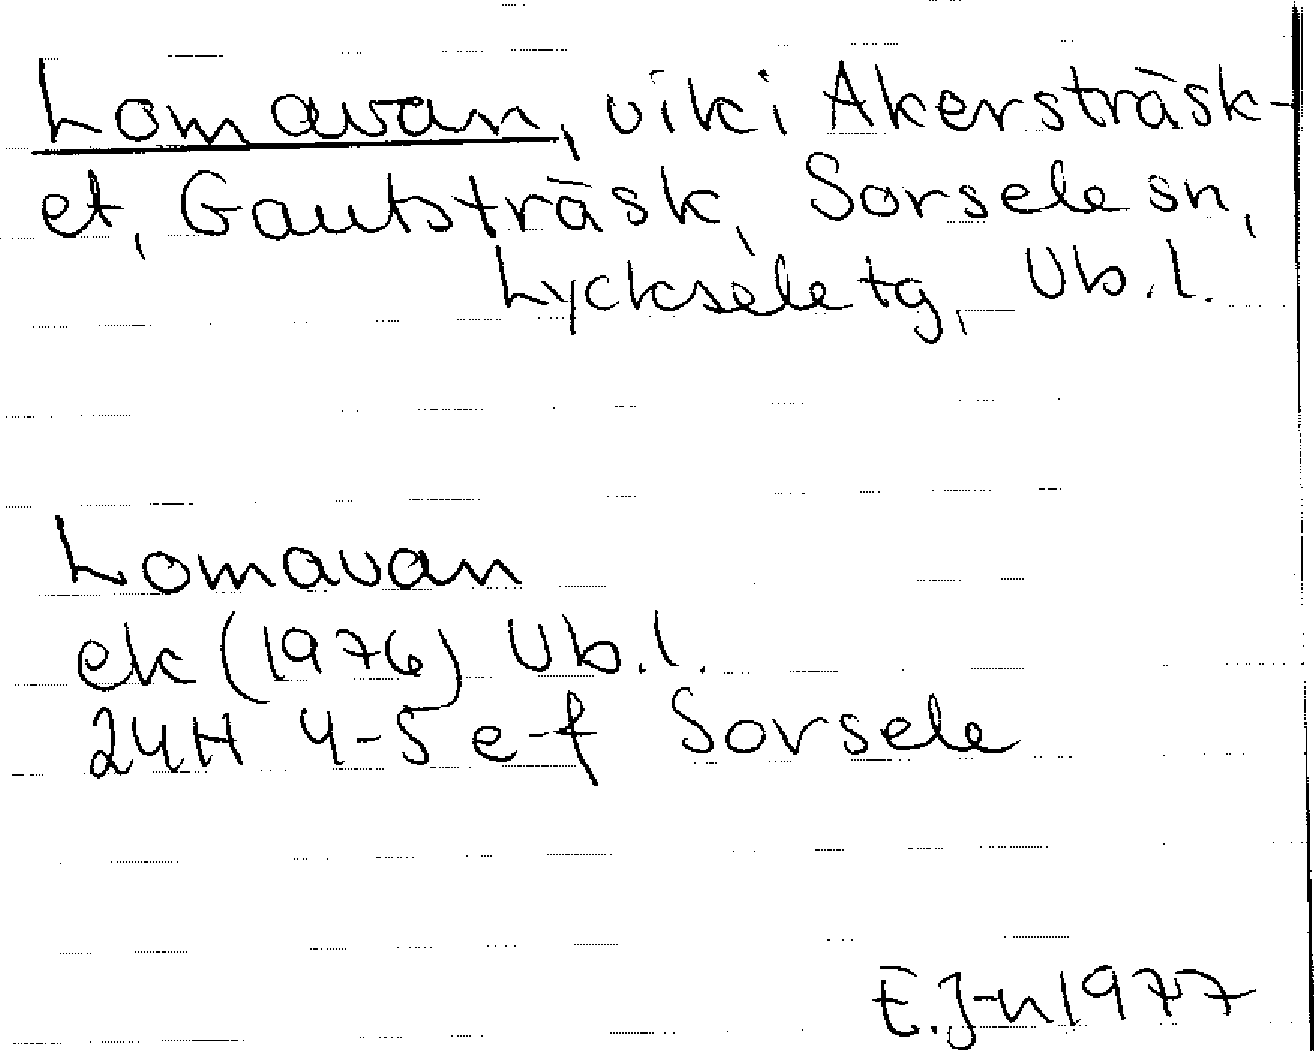 Lomavan, vik i Akersträsk-
et, Gautsträsk, Sorsele sn,
Lycksele tg, Vb.l.
Lomavan
ek (1976) Vb.l.
24H 4-5 e-f Sorsele
E.J-n 1977